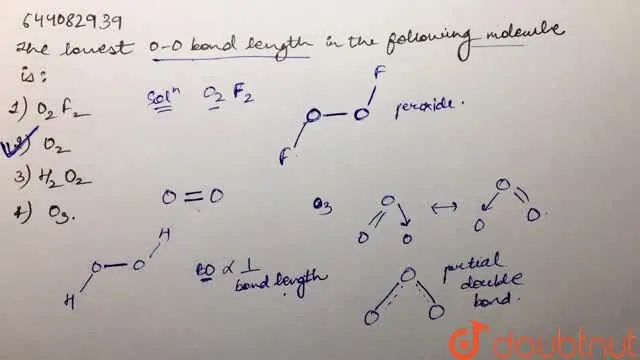 644082939
The lowest O-O bond length in the following molecule
is:
1) O2F2
2) O2
3) H2O2
4) O3.
Solⁿ O2F2
F
O — O
F
peroxide.
O = O
H
O — O
H
BO ∝ 1
bond length
O3
O
O O
↔
O
O O
partial
double
bond.
O
O O
doubtnut